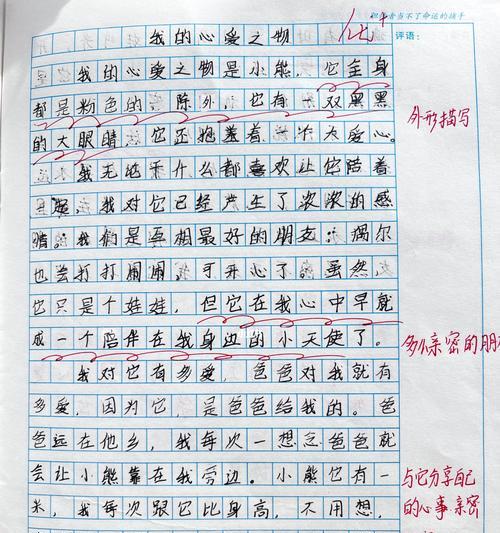 积极者当不了命运的骑手
我的心爱之物
优+
评语:
我的心爱之物是小熊,它全身
都是粉色的 除外,它有一双黑黑
的大眼睛,它还抱着 个大爱心。
外形描写
我无地干什么都喜欢让它陪着
我对它已经产生了浓浓的感
情:我们是互相最好的朋友:偶尔
也会打打闹闹,可开心了。虽然,
它只是个娃娃,但它在我心中早就
成一个陪伴在我身边的小天使了。
多么亲密的朋
我对它有多爱,爸爸对我就有
多爱,因为它,是爸爸给我的。爸
爸远在他乡,我每次一想念爸爸就
会让小熊靠在我旁边。小熊它有一
与它分享自己
米,我每次跟它比身高,不用想,
的心事亲密